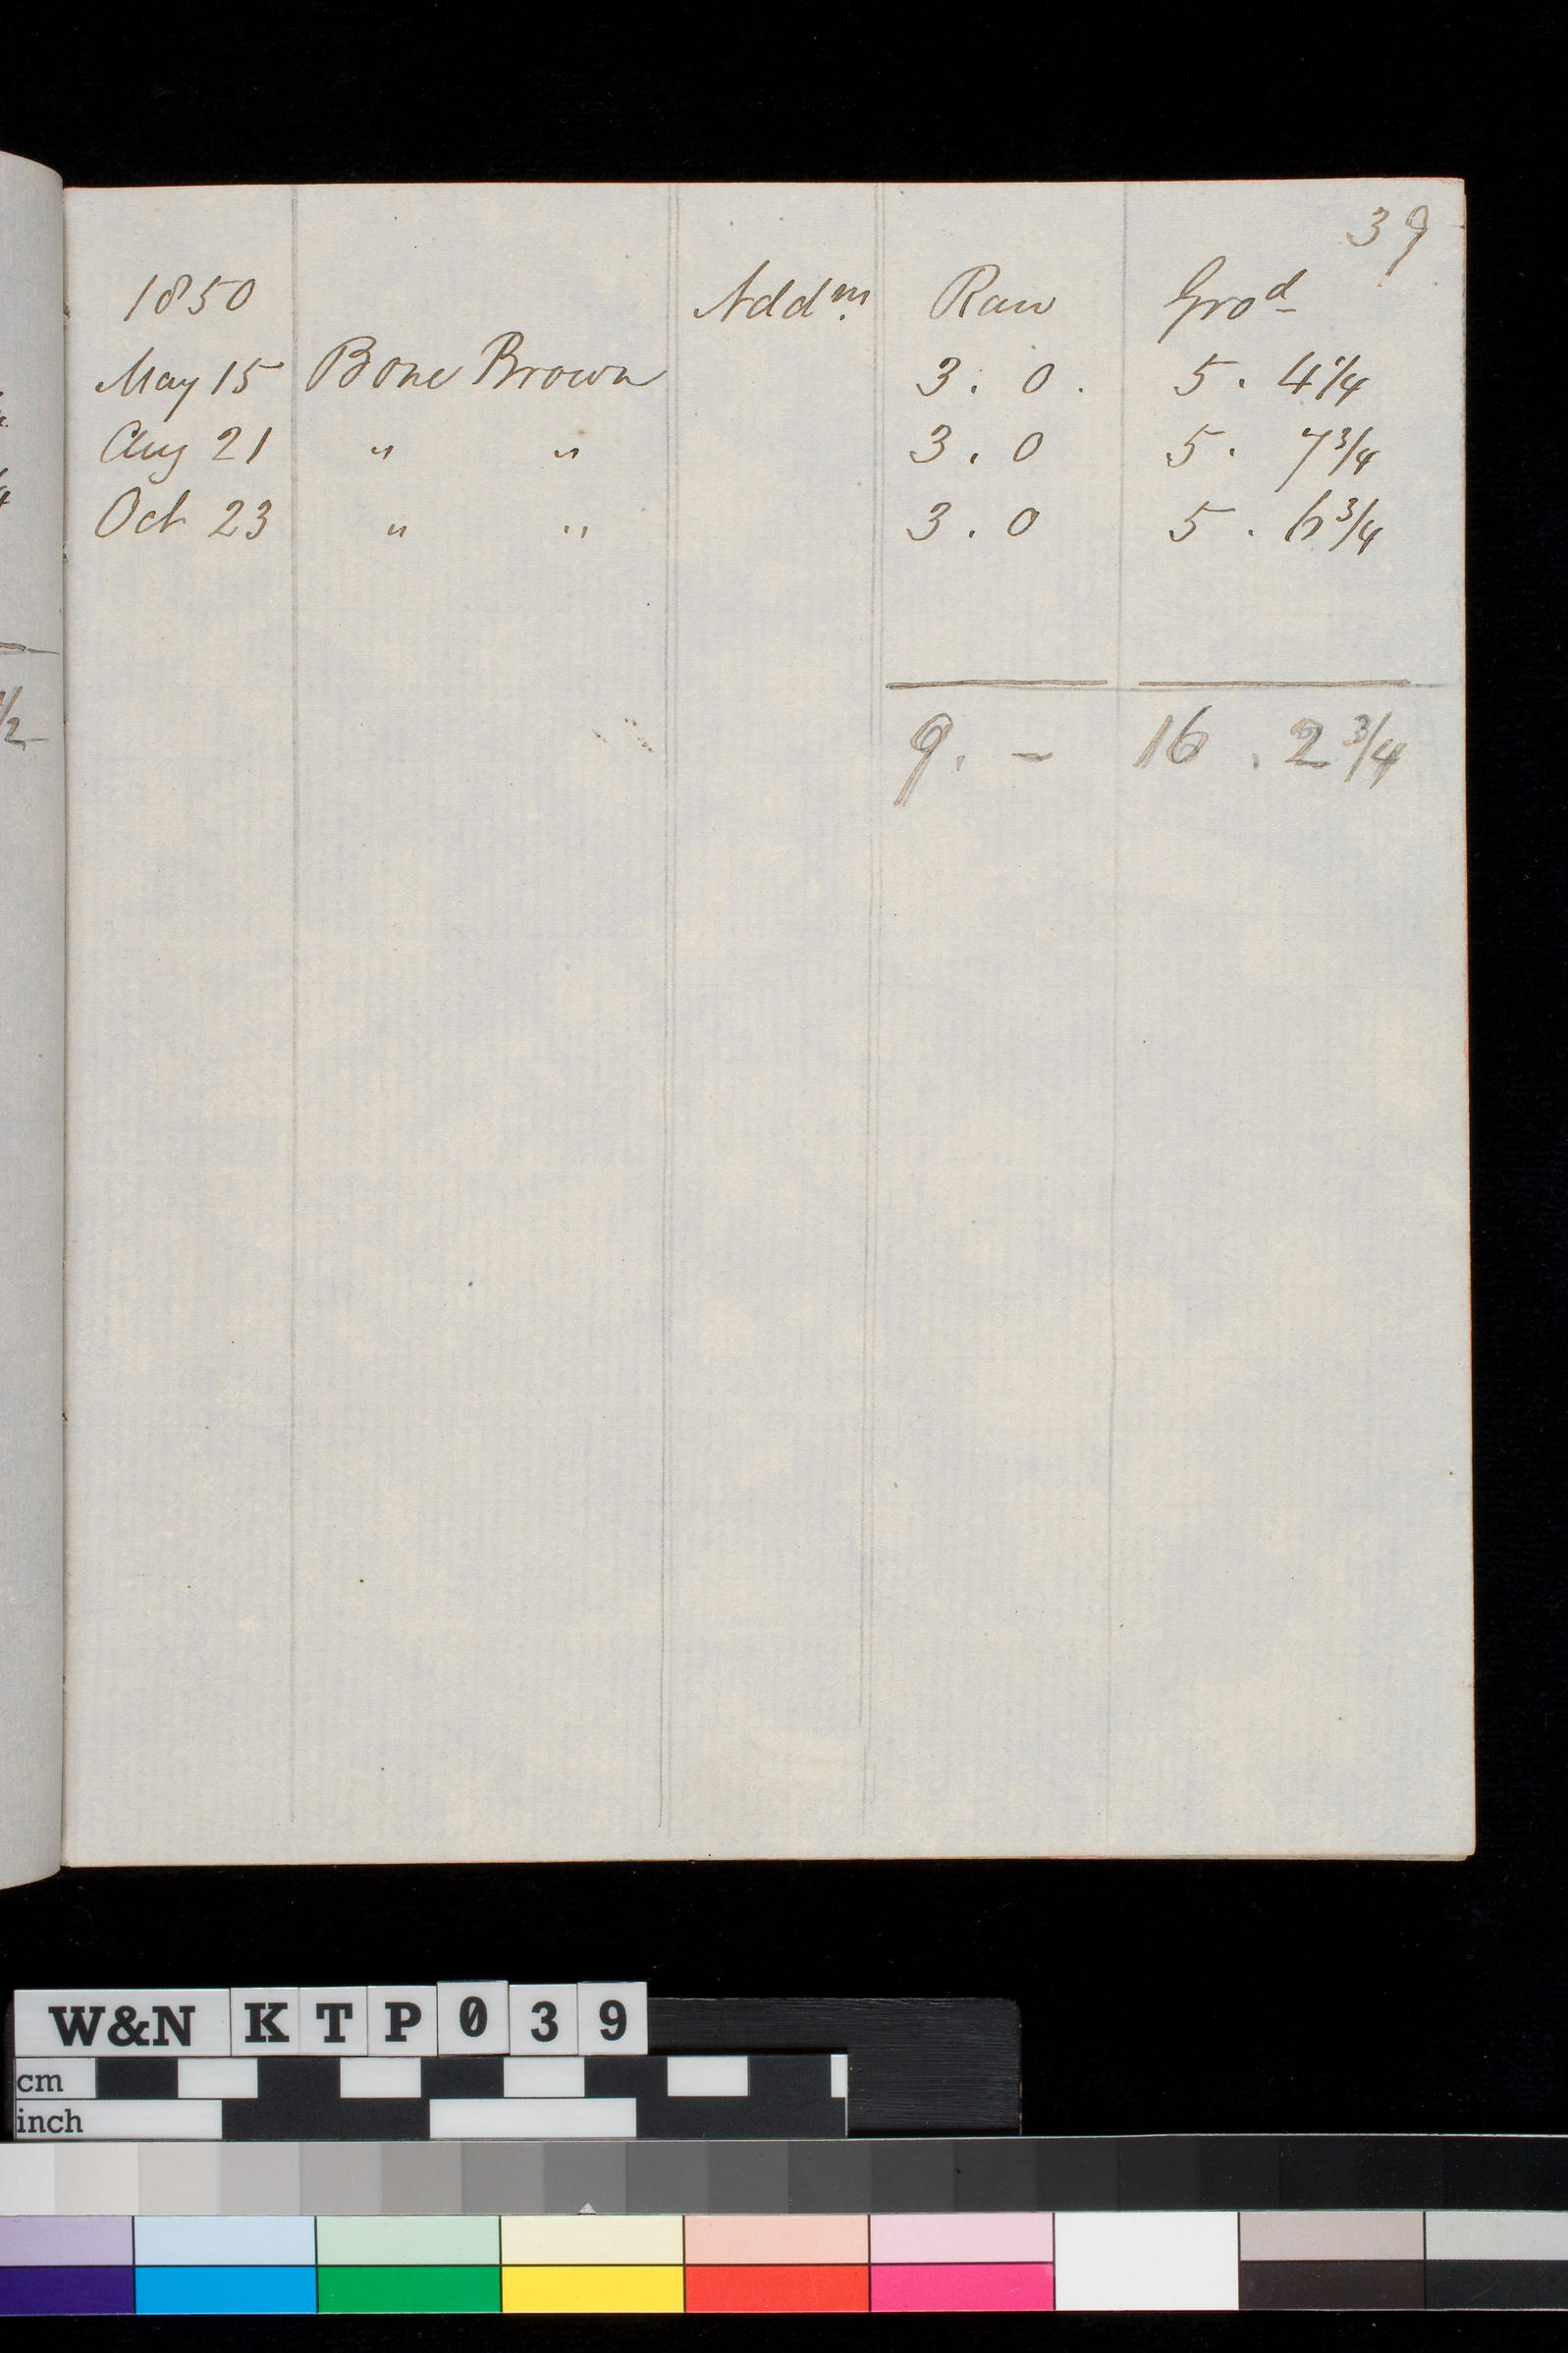 39
1850 Addm. Raw Grod
May 15 Bone Brown 3. 0. 5. 4 1/4
Aug 21 " " 3. 0 5. 7 3/4
Oct 23 " " 3. 0 5. 6 3/4
9. - 16. 2 3/4
1/2
W&N KTP039
cm
inch